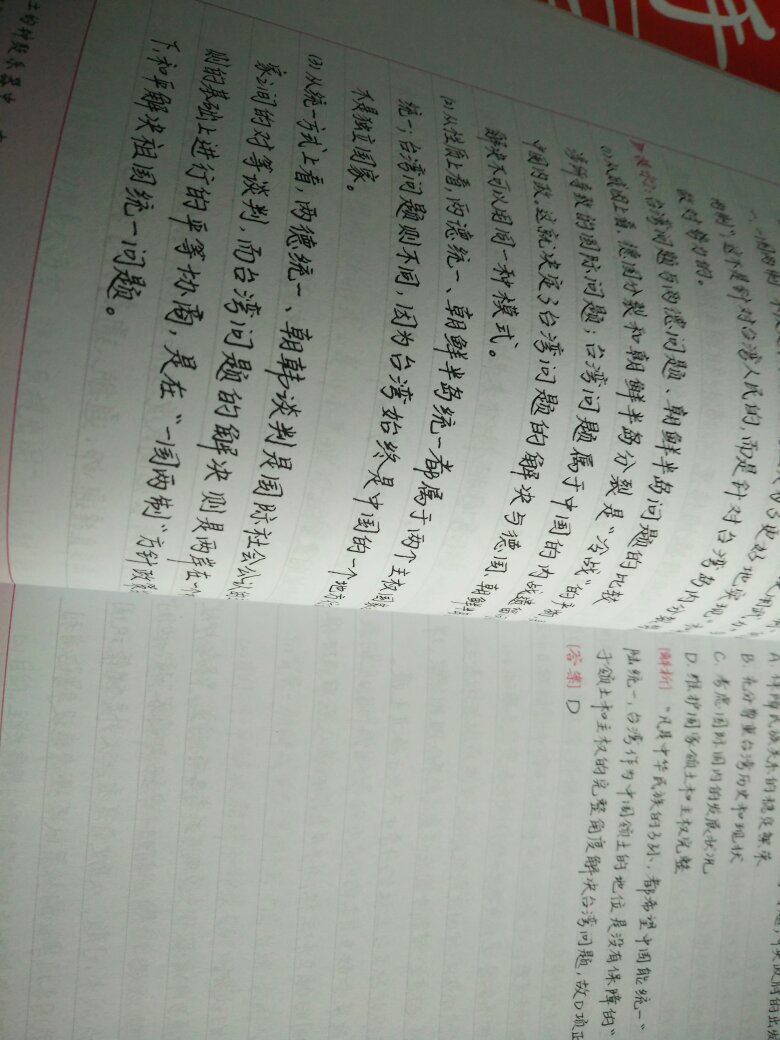 内制"这不是针对台湾人民的,而是针对台湾岛内分裂
敌对势力的。
台湾问题与两德问题、朝鲜半岛问题的比较
(1)从成因上看,德国分裂和朝鲜半岛分裂是"冷战"的
涉所导致的国际问题;台湾问题属于中国的内战
中国内政。这就决定了台湾问题的解决与德国、朝鲜
解决不可以用同一种模式。
(2)从性质上看,两德统一、朝鲜半岛统一都属于两个主权国家
统一,台湾问题则不同,因为台湾始终是中国的一个地方
不是独立国家。
(3)从统一方式上看,两德统一、朝韩谈判是国际社会公认的
家之间的对等谈判,而台湾问题的解决则是两岸在一个
则的基础上进行的平等协商,是在"一国两制"方针政策
下,和平解决祖国统一问题。
B.充分尊重台湾历史和现状
C.考虑国际国内的发展状况
D.维护国家领土和主权完整
[解析] "凡是中华民族的子孙,都希望中国能统一"
陆统一,台湾作为中国领土的地位是没有保障的"
于领土和主权的完整角度解决台湾问题,故D项正
[答案] D